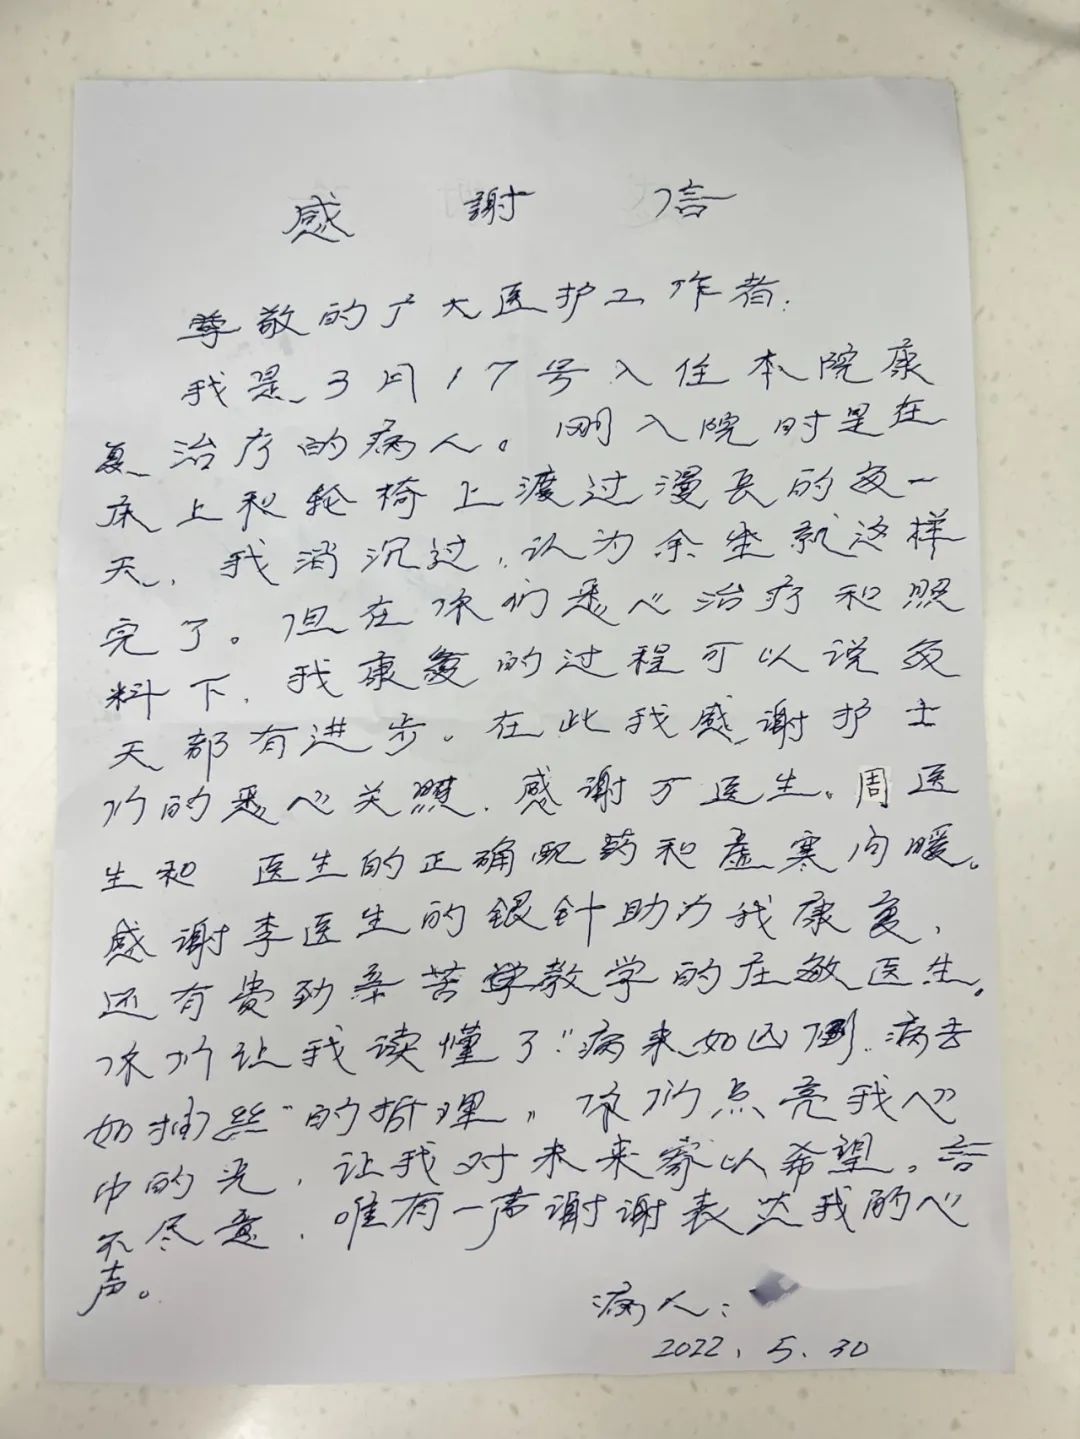 感 謝 信
尊敬的广大医护工作者:
我是3月17号入住本院康
复治疗的病人。刚入院时是在
床上和轮椅上渡过漫长的每一
天,我消沉过,认为余生就这样
完了。但在你们悉心治疗和照
料下,我康复的过程可以说每
天都有进步。在此我感谢护士
们的悉心关照,感谢丁医生。周医
生和 医生的正确配药和虚寒问暖。
感谢李医生的银针助力我康复,
还有费劲辛苦教学的庄敏医生。
你们让我读懂了“病来如山倒,病去
如抽丝”的哲理。你们点亮我心
中的光,让我对未来寄以希望。言
不尽意,唯有一声谢谢表达我的心
声。
病人:
2022.5.30